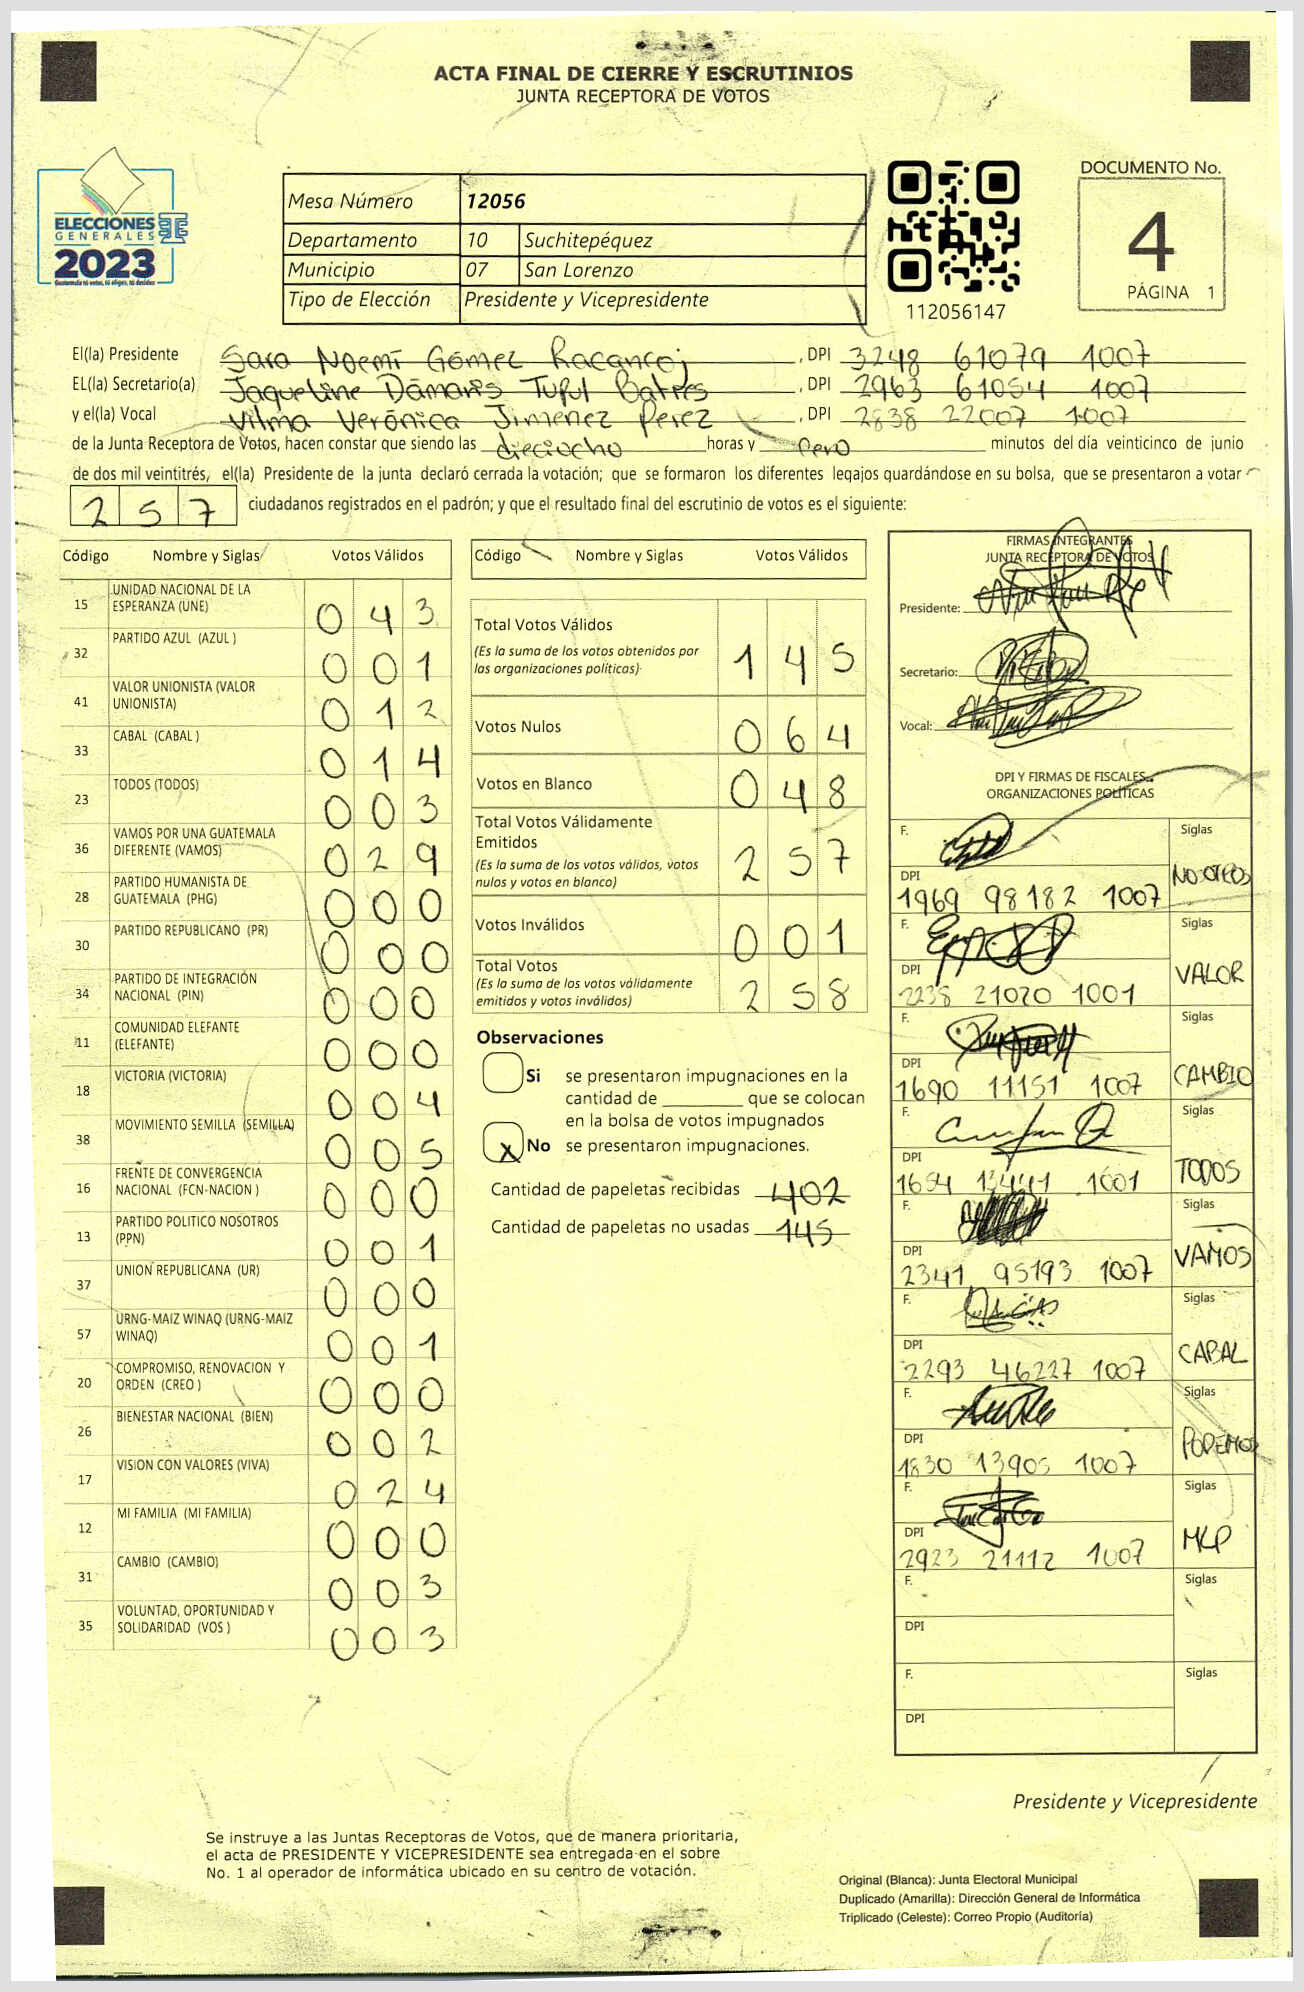 ACTA FINAL DE CIERRE Y ESCRUTINIOS
JUNTA RECEPTORA DE VOTOS
ELECCIONES
GENERALES
2023
Guatemala tú votas, tú eliges, tú decides
Mesa Número 12056
Departamento 10 Suchitepéquez
Municipio 07 San Lorenzo
Tipo de Elección Presidente y Vicepresidente
112056147
DOCUMENTO No.
4
PÁGINA 1
El(la) Presidente Sara Noemí Gómez Racancoj, DPI 3248 61079 1007
EL(la) Secretario(a) Jaqueline Dámaris Batres, DPI 2963 61054 1007
y el(la) Vocal Vilma Verónica Jimenez Perez, DPI 2838 22007 1007
de la Junta Receptora de Votos, hacen constar que siendo las dieciocho horas y pero minutos del día veinticinco de junio
de dos mil veintitrés, el(la) Presidente de la junta declaró cerrada la votación; que se formaron los diferentes legajos guardándose en su bolsa, que se presentaron a votar
257 ciudadanos registrados en el padrón; y que el resultado final del escrutinio de votos es el siguiente:
Código Nombre y Siglas Votos Válidos
15 UNIDAD NACIONAL DE LA ESPERANZA (UNE) 043
32 PARTIDO AZUL (AZUL ) 001
41 VALOR UNIONISTA (VALOR UNIONISTA) 012
33 CABAL (CABAL ) 014
23 TODOS (TODOS) 003
36 VAMOS POR UNA GUATEMALA DIFERENTE (VAMOS) 029
28 PARTIDO HUMANISTA DE GUATEMALA (PHG) 000
30 PARTIDO REPUBLICANO (PR) 000
34 PARTIDO DE INTEGRACIÓN NACIONAL (PIN) 000
11 COMUNIDAD ELEFANTE (ELEFANTE) 000
18 VICTORIA (VICTORIA) 004
38 MOVIMIENTO SEMILLA (SEMILLA) 005
16 FRENTE DE CONVERGENCIA NACIONAL (FCN-NACION ) 000
13 PARTIDO POLITICO NOSOTROS (PPN) 001
37 UNION REPUBLICANA (UR) 000
57 URNG-MAIZ WINAQ (URNG-MAIZ WINAQ) 001
20 COMPROMISO, RENOVACION Y ORDEN (CREO ) 000
26 BIENESTAR NACIONAL (BIEN) 002
17 VISION CON VALORES (VIVA) 024
12 MI FAMILIA (MI FAMILIA) 000
31 CAMBIO (CAMBIO) 003
35 VOLUNTAD, OPORTUNIDAD Y SOLIDARIDAD (VOS ) 003
Código Nombre y Siglas Votos Válidos
Total Votos Válidos 145
(Es la suma de los votos obtenidos por
las organizaciones políticas)
Votos Nulos 064
Votos en Blanco 048
Total Votos Válidamente
Emitidos 257
(Es la suma de los votos válidos, votos
nulos y votos en blanco)
Votos Inválidos 001
Total Votos 258
(Es la suma de los votos válidamente
emitidos y votos inválidos)
Observaciones
Si se presentaron impugnaciones en la
cantidad de ________ que se colocan
en la bolsa de votos impugnados
X No se presentaron impugnaciones.
Cantidad de papeletas recibidas 402
Cantidad de papeletas no usadas 145
FIRMAS INTEGRANTES
JUNTA RECEPTORA DE VOTOS
Presidente:
Secretario:
Vocal:
DPI Y FIRMAS DE FISCALES
ORGANIZACIONES POLÍTICAS
F. Siglas
DPI NOSOTROS
1969 98182 1007
F. Siglas
DPI VALOR
2238 21020 1001
F. Siglas
DPI CAMBIO
1690 11151 1007
F. Siglas
DPI TODOS
1654 13441 1001
F. Siglas
DPI VAMOS
2341 95193 1007
F. Siglas
DPI CABAL
2293 46227 1007
F. Siglas
DPI PODEMOS
1830 13905 1007
F. Siglas
DPI MLP
2923 21112 1007
F. Siglas
DPI
F. Siglas
DPI
Presidente y Vicepresidente
Se instruye a las Juntas Receptoras de Votos, que de manera prioritaria,
el acta de PRESIDENTE Y VICEPRESIDENTE sea entregada en el sobre
No. 1 al operador de informática ubicado en su centro de votación.
Original (Blanca): Junta Electoral Municipal
Duplicado (Amarilla): Dirección General de Informática
Triplicado (Celeste): Correo Propio (Auditoría)